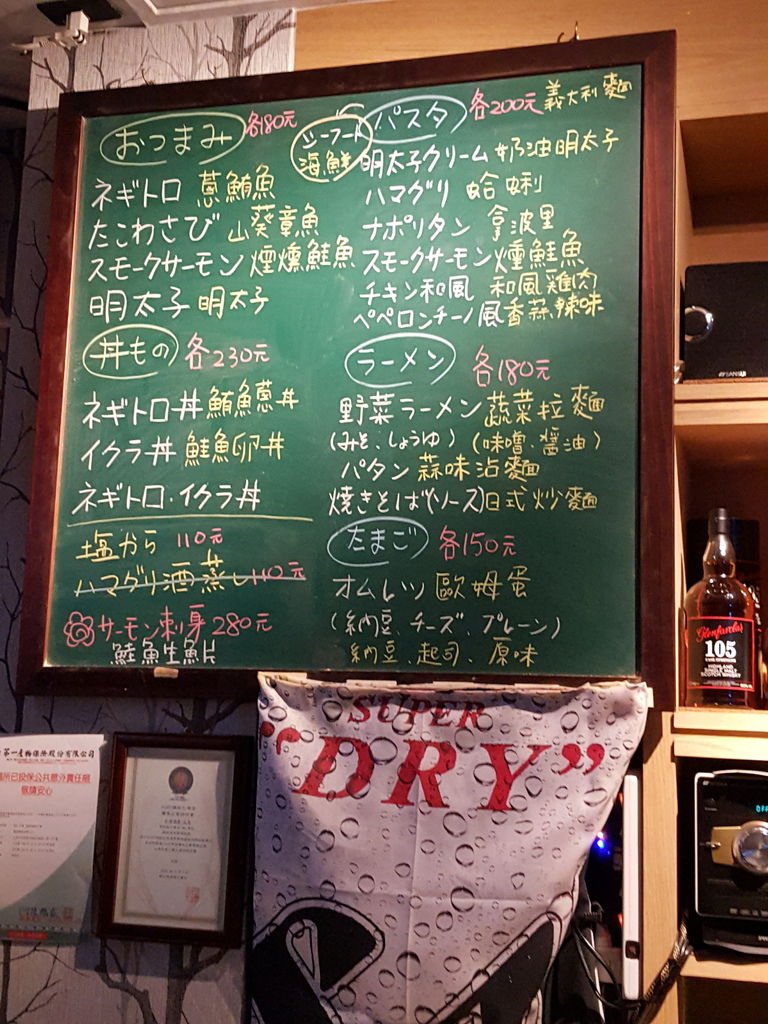 おつまみ 各180元
ネギトロ 蔥鮪魚
たこわさび 山葵章魚
スモークサーモン 煙燻鮭魚
明太子 明太子
丼もの 各230元
ネギトロ丼 鮪魚蔥丼
イクラ丼 鮭魚卵丼
ネギトロ・イクラ丼
塩から 110元
ハマグリ酒蒸し 110元
サーモン刺身 280元
鮭魚生魚片
シーフード
海鮮
パスタ 各200元 義大利麵
明太子クリーム 奶油明太子
ハマグリ 蛤蜊
ナポリタン 拿波里
スモークサーモン 燻鮭魚
チキン和風 和風雞肉
ペペロンチーノ風 香蒜辣味
ラーメン 各180元
野菜ラーメン 蔬菜拉麵
(みそ、しょうゆ) (味噌、醬油)
パタン 蒜味沾麵
焼きそば(ソース) 日式炒麵
たまご 各150元
オムレツ 歐姆蛋
(納豆、チーズ、プレーン)
納豆、起司、原味
Glenfarclas
105
SUPER
"DRY"
第一產物保險股份有限公司
所已投保公共意外責任險
敬請安心